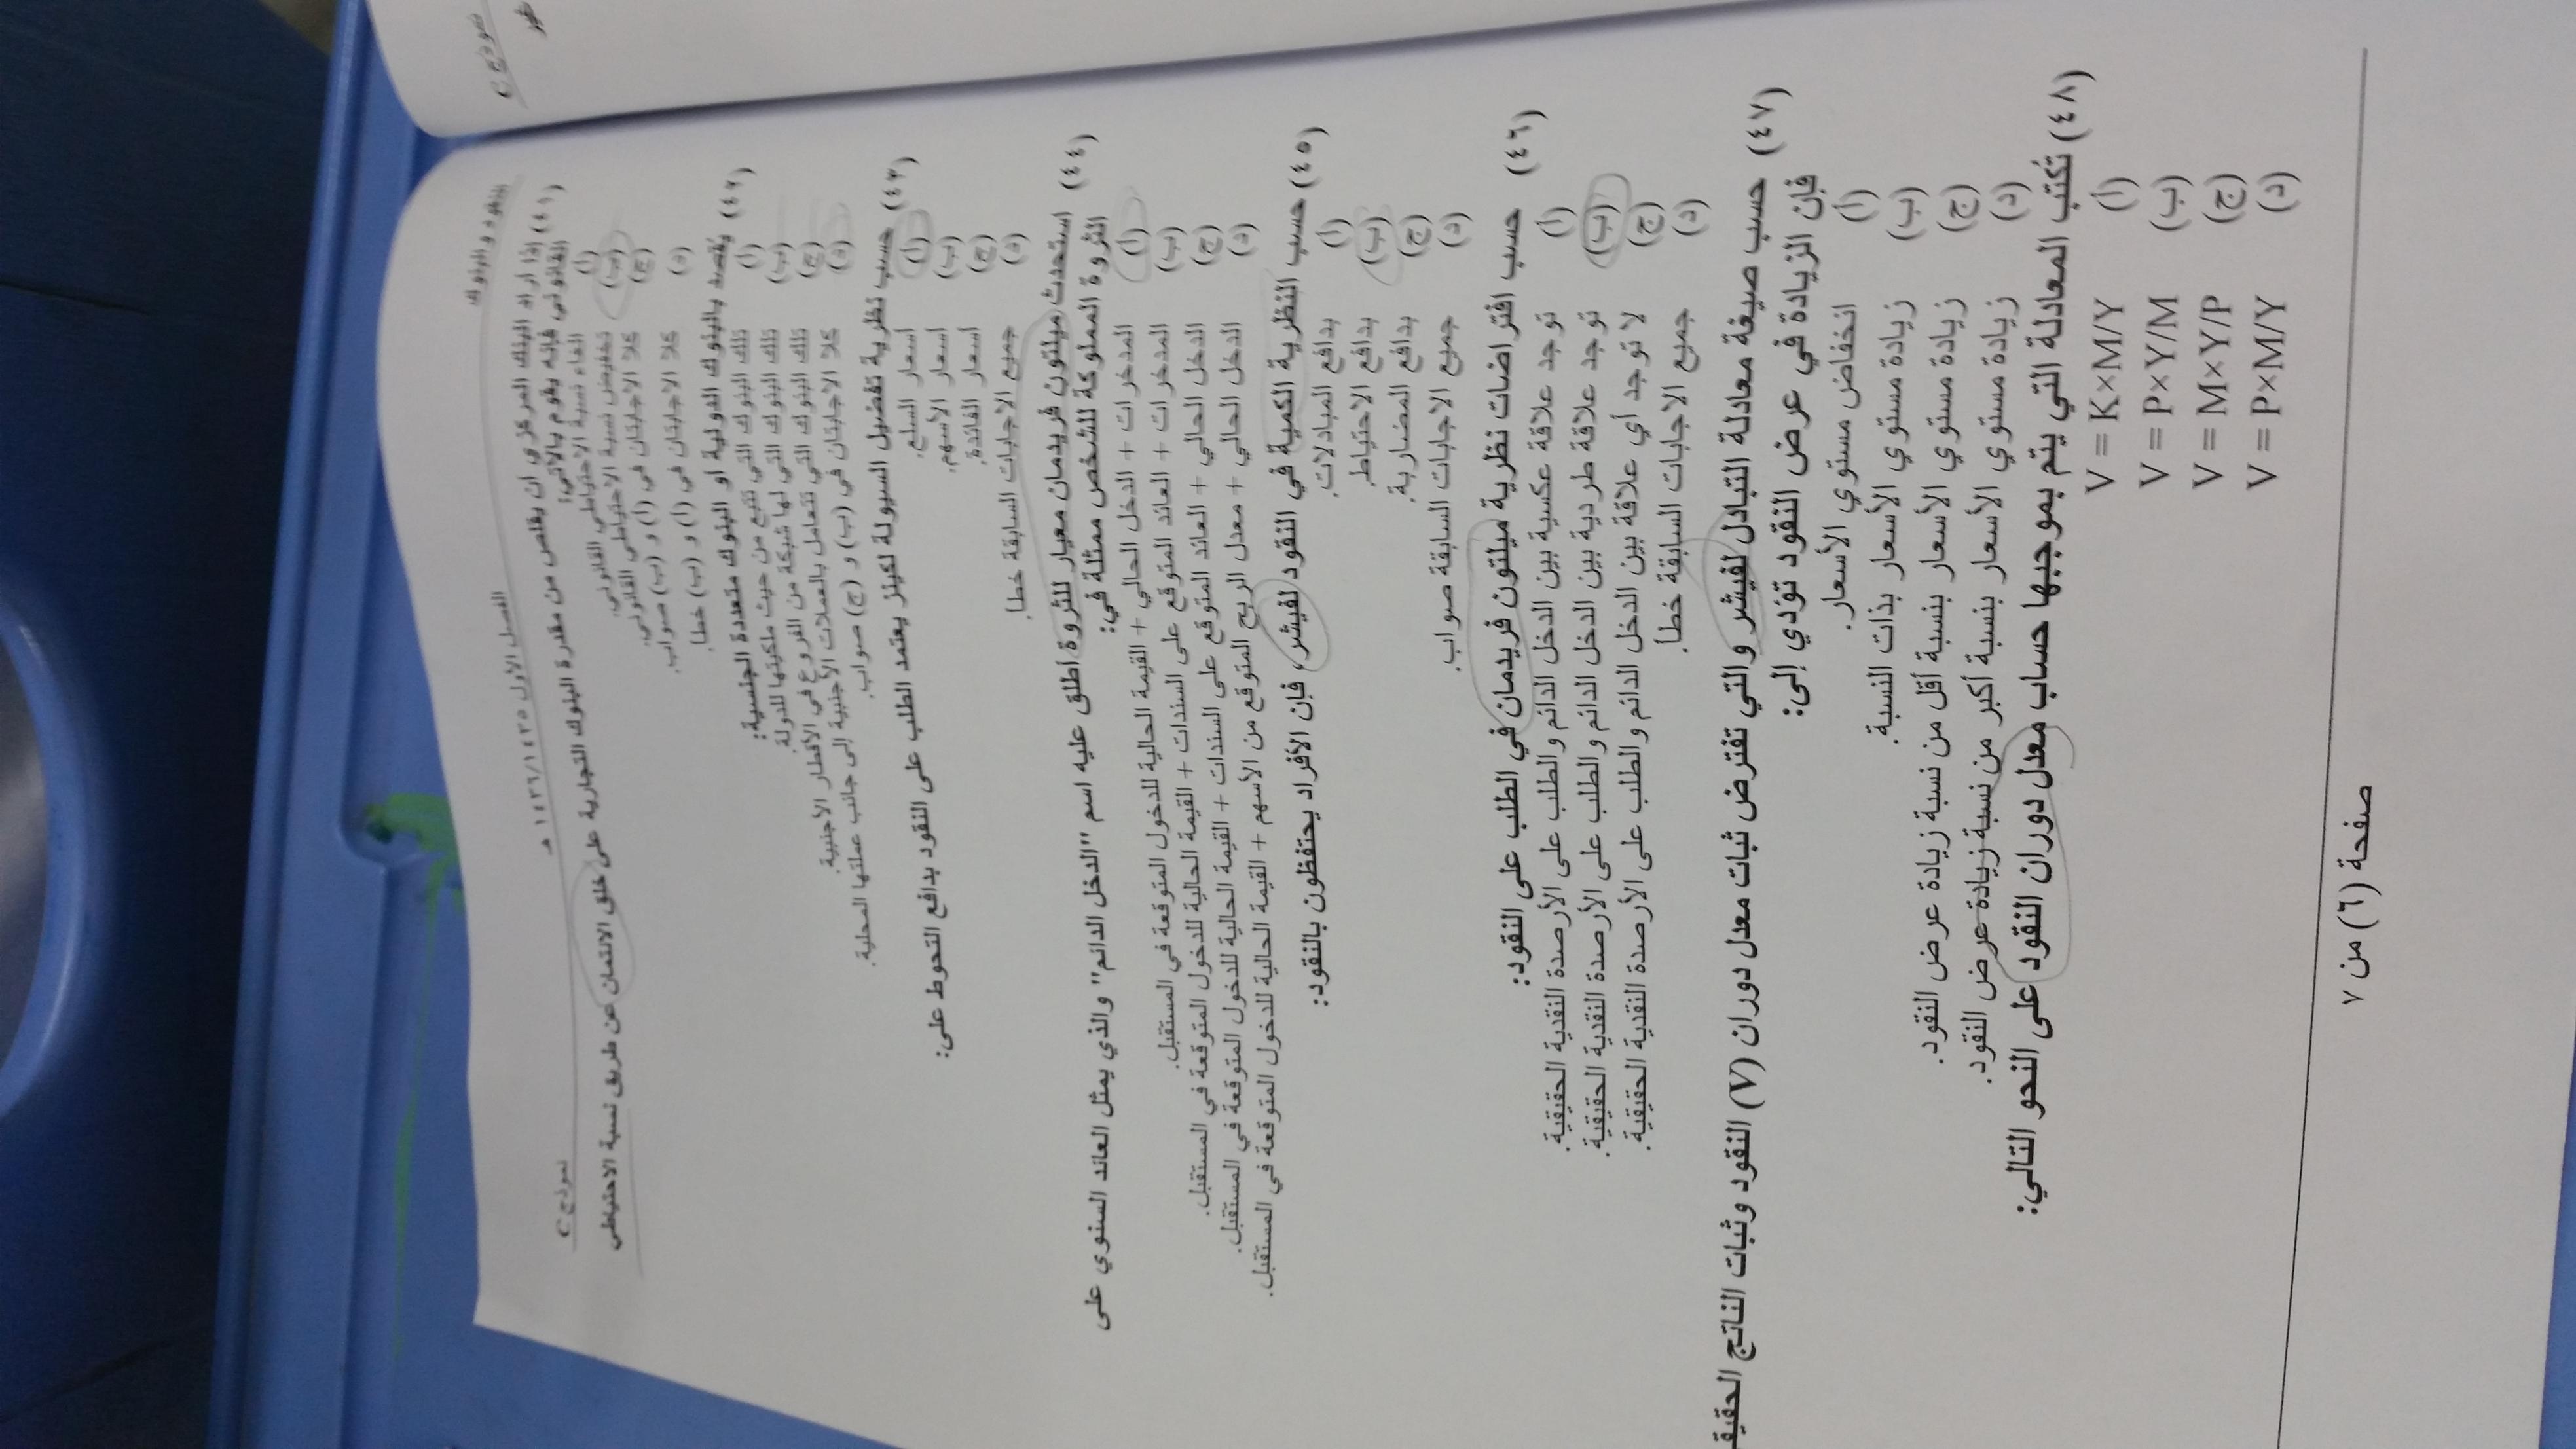 النقود والبنوك
الفصل الأول ١٤٣٥/١٤٣٦ هـ
نموذج C
(٤١) إذا أراد البنك المركزي أن يقلص من مقدرة البنوك التجارية على خلق الائتمان عن طريق نسبة الاحتياطي
القانوني فإنه يقوم بالآتي:
(أ) الغاء نسبة الاحتياطي القانوني.
(ب) تخفيض نسبة الاحتياطي القانوني.
(ج) كلا الاجابتان في (أ) و (ب) صواب.
(د) كلا الاجابتان في (أ) و (ب) خطا.
(٤٢) يقصد بالبنوك الدولية او البنوك متعددة الجنسية:
(أ) تلك البنوك التي تتبع من حيث ملكيتها للدولة.
(ب) تلك البنوك التي لها شبكة من الفروع في الأقطار الأجنبية.
(ج) تلك البنوك التي تتعامل بالعملات الأجنبية إلى جانب عملتها المحلية.
(د) كلا الاجابتان في (ب) و (ج) صواب.
(٤٣) حسب نظرية تفضيل السيولة لكينز يعتمد الطلب على النقود بدافع التحوط على:
(أ) اسعار السلع.
(ب) اسعار الأسهم.
(ج) اسعار الفائدة.
(د) جميع الاجابات السابقة خطا.
(٤٤) استحدث ميلتون فريدمان معيار للثروة أطلق عليه اسم "الدخل الدائم" والذي يمثل العائد السنوي على
الثروة المملوكة للشخص ممثلة في:
(أ) المدخرات + الدخل الحالي + القيمة الحالية للدخول المتوقعة في المستقبل.
(ب) المدخرات + العائد المتوقع على السندات + القيمة الحالية للدخول المتوقعة في المستقبل.
(ج) الدخل الحالي + العائد المتوقع على السندات + القيمة الحالية للدخول المتوقعة في المستقبل.
(د) الدخل الحالي + معدل الربح المتوقع من الأسهم + القيمة الحالية للدخول المتوقعة في المستقبل.
(٤٥) حسب النظرية الكمية في النقود لفيشر، فإن الأفراد يحتفظون بالنقود:
(أ) بدافع المبادلات.
(ب) بدافع الاحتياط.
(ج) بدافع المضاربة.
(د) جميع الاجابات السابقة صواب.
(٤٦) حسب افتراضات نظرية ميلتون فريدمان في الطلب على النقود:
(أ) توجد علاقة عكسية بين الدخل الدائم والطلب على الأرصدة النقدية الحقيقية.
(ب) توجد علاقة طردية بين الدخل الدائم والطلب على الأرصدة النقدية الحقيقية.
(ج) لا توجد أي علاقة بين الدخل الدائم والطلب على الأرصدة النقدية الحقيقية.
(د) جميع الاجابات السابقة خطأ.
(٤٧) حسب صيغة معادلة التبادل لفيشر والتي تفترض ثبات معدل دوران (V) النقود وثبات الناتج
فإن الزيادة في عرض النقود تؤدي إلى:
(أ) انخفاض مستوي الأسعار.
(ب) زيادة مستوي الأسعار بذات النسبة.
(ج) زيادة مستوي الأسعار بنسبة أقل من نسبة زيادة عرض النقود.
(د) زيادة مستوي الأسعار بنسبة أكبر من نسبة زيادة عرض النقود.
(٤٨) تكتب المعادلة التي يتم بموجبها حساب معدل دوران النقود على النحو التالي:
(أ) V = K×M/Y
(ب) V = P×Y/M
(ج) V = M×Y/P
(د) V = P×M/Y
صفحة (٦) من ٧
نموذج C